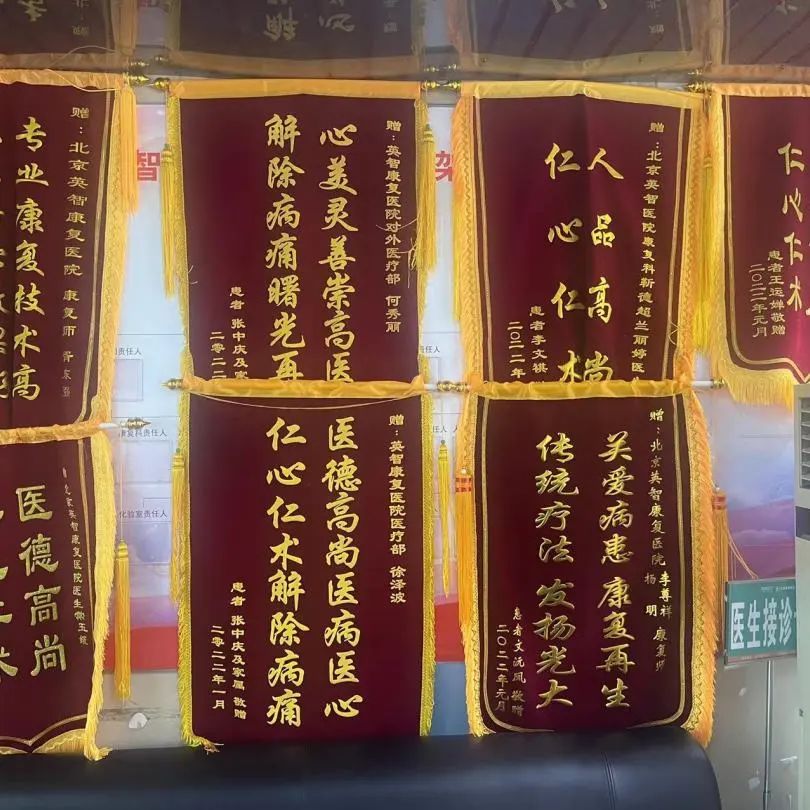 赠：北京英智康复医院 康复师
专业康复技术高
赠：英智康复医院对外医疗部 何秀丽
心美灵善崇高医
解除病痛曙光再
患者 张中庆及家
二零二二
赠：北京英智医院康复科靳德超兰丽婷医
人品高尚
仁心仁术
患者李文祺
二〇二二年
仁心仁术
患者王运婵敬赠
二〇二二年元月
智
架
责任人
康复科责任人
化验室责任人
北京英智康复医院医生
医德高尚
赠：英智康复医院医疗部 徐泽波
医德高尚医病医心
仁心仁术解除病痛
患者 张中庆及家属 敬赠
二〇二二年一月
赠：北京英智康复医院 李尊祥 杨明 康复师
关爱病患 康复再生
传统疗法 发扬光大
患者文沅凤 敬赠
二〇二二年元月
医生接诊